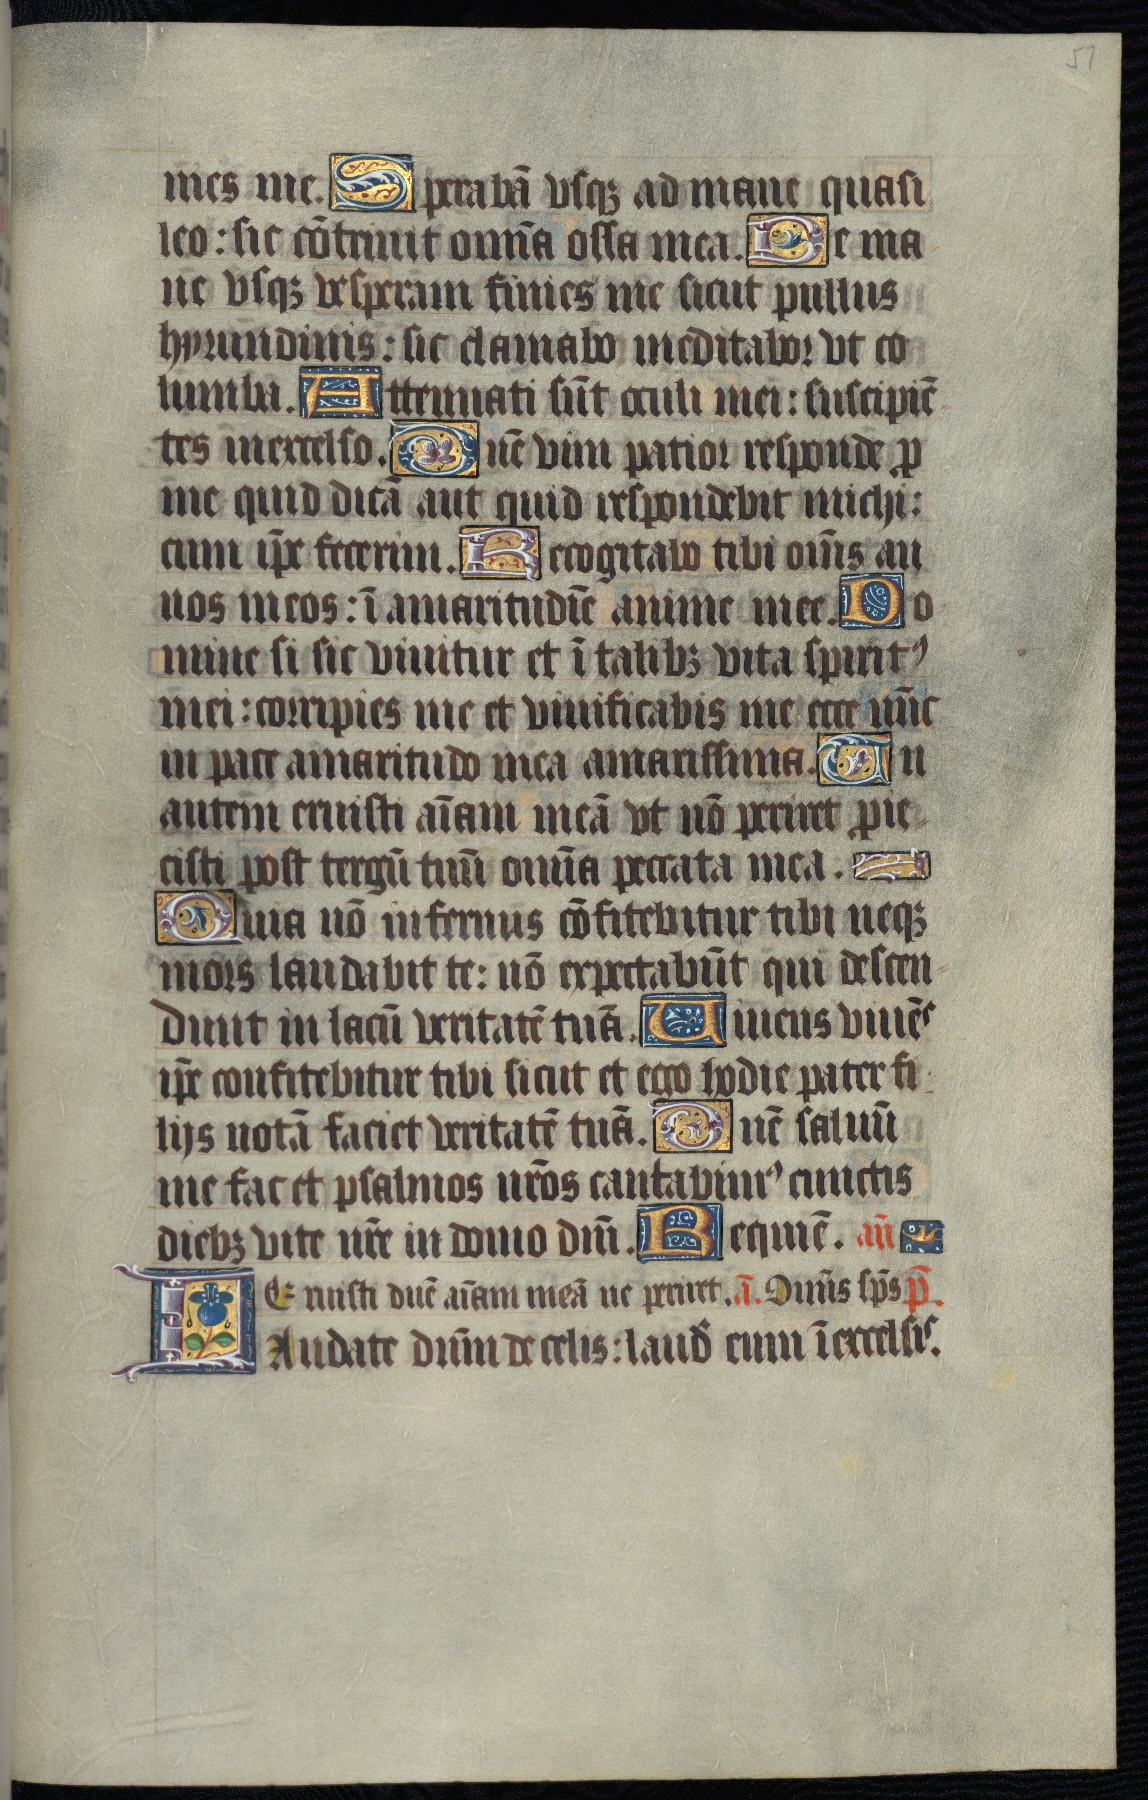 51
nies me. Sperabā vsqꝫ ad mane quasi
leo: sic cōtriuit omīa ossa mea. De ma
ne vsqꝫ vesperam finies me sicut pullus
hyrundinis: sic clamabo meditabor vt co
lumba. Attenuati sūt oculi mei: suscipiē
tes inexcelso. Dn̄e vim patior responde ꝓ
me quid dicā aut quid respondebit michi:
cum ip̄e fecerim. Recogitabo tibi om̄s an
nos meos: ī amaritudīe anime mee. Do
mine si sic viuitur et ī talibꝫ vita spiritꝰ
mei: corripies me et viuificabis me ecce nūc
in pace amaritudo mea amarissima. Tu
autem eruisti aīam meā vt nō periret ꝓie
cisti post tergū tuū omīa peccata mea.
Quia nō infernus cōfitebitur tibi neqꝫ
mors laudabit te: nō expectabūt qui descen
dunt in lacū veritatē tuā. Uiuens viuēs
ip̄e confitebitur tibi sicut et ego hodie pater fi
lijs notā faciet veritatē tuā. Dn̄e saluū
me fac et psalmos nr̄os cantabimꝰ cunctis
diebꝫ vite nr̄e in domo dn̄i. Requiē. an̄
Eruisti dn̄e aīam meā ne periret. ā. Omīs sp̄s p̄.
Laudate dn̄m de celis: laud̄ eum ī excelsis.